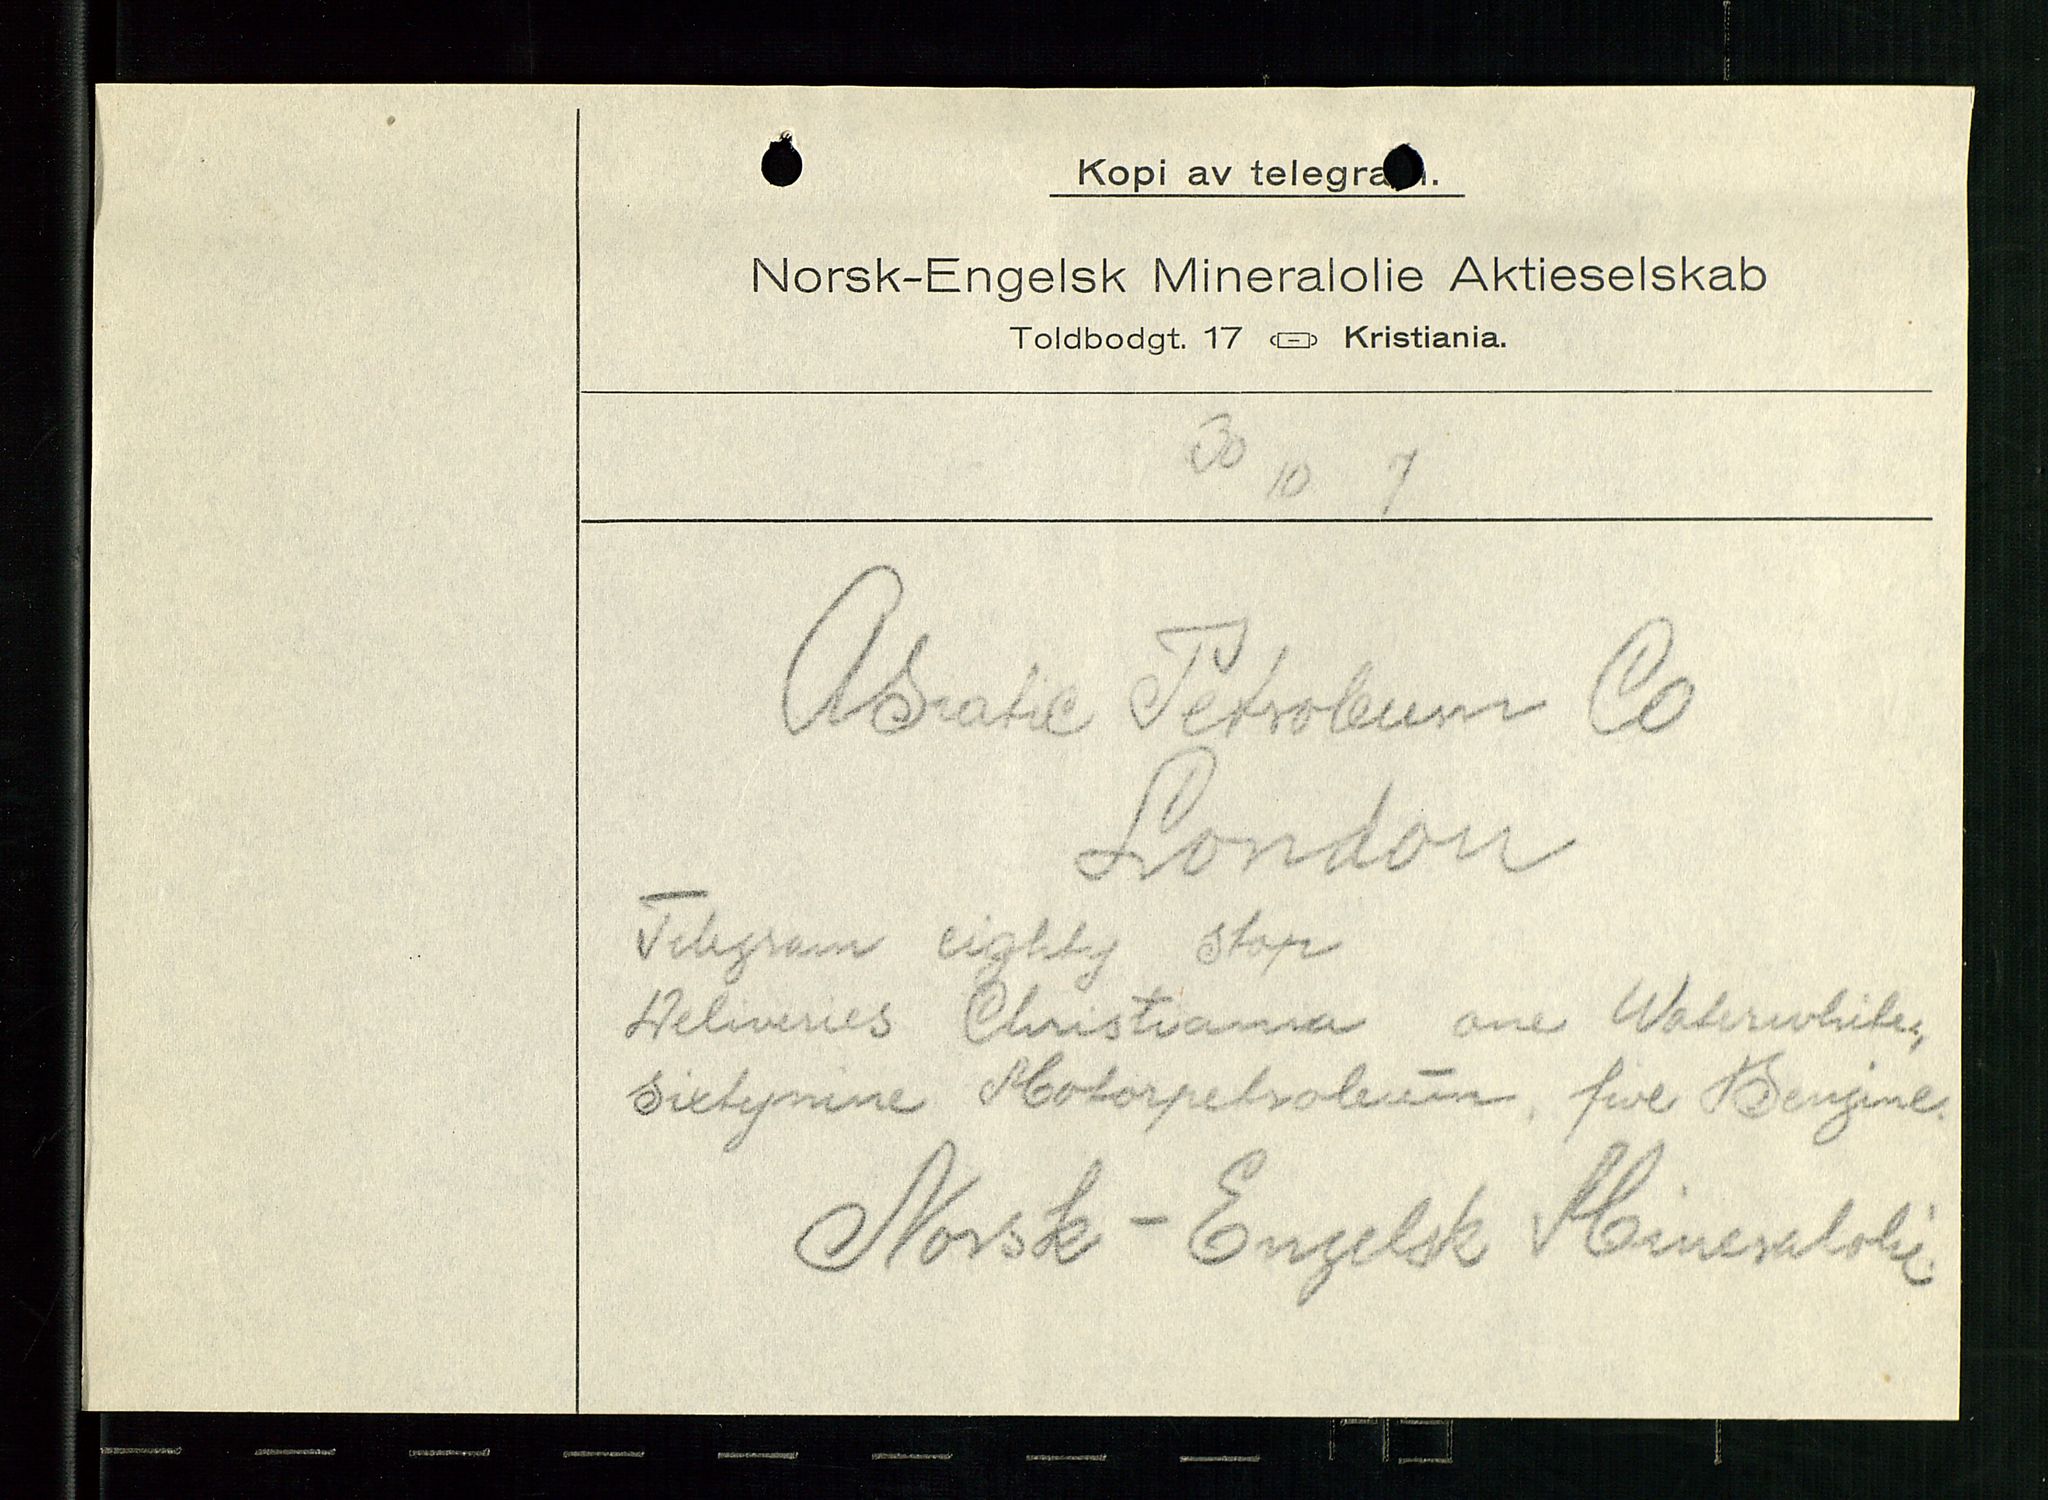 Kopi av telegram.
Norsk-Engelsk Mineralolie Aktieselskab
Toldbodgt. 17 Kristiania.
30 10 7
Asiatic Petroleum Co
London
Telegram eighty stop
Deliveries Christiania one Waterwhite,
sixtynine Motorpetroleum, five Benzine.
Norsk-Engelsk Mineralolie.